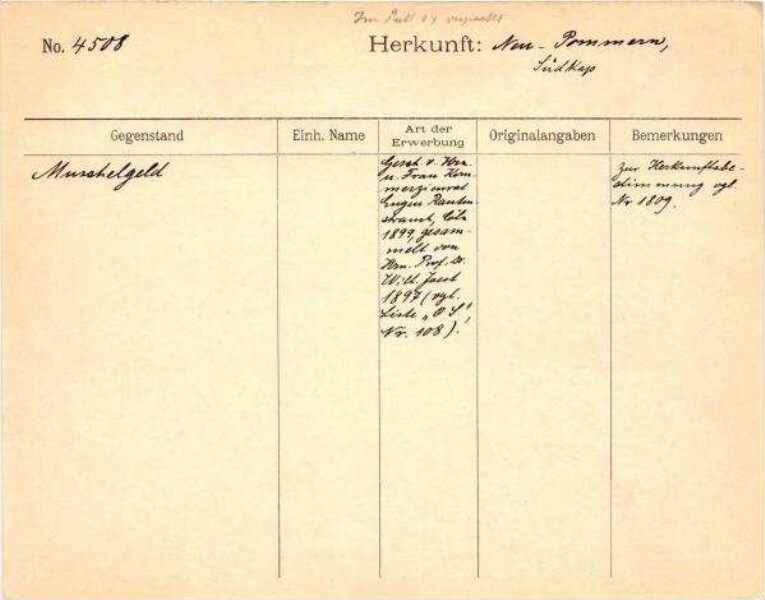 Im Pult 14
No. 4508
Herkunft: Neu-Pommern,
Südkap
Gegenstand
Einh. Name
Art der
Erwerbung
Originalangaben
Bemerkungen
Muschelgeld
Gesch. v. Hrn.
u. Frau Kom-
merzienrat
Eugen Rauten-
strauch, Cöln
1899, gesam-
melt von
Hrn. Prof. Dr.
W. Joest
1897 (vgl.
Liste „O S",
Nr. 108).
Zur Herkunftsbe-
stimmung vgl.
Nr 1809.